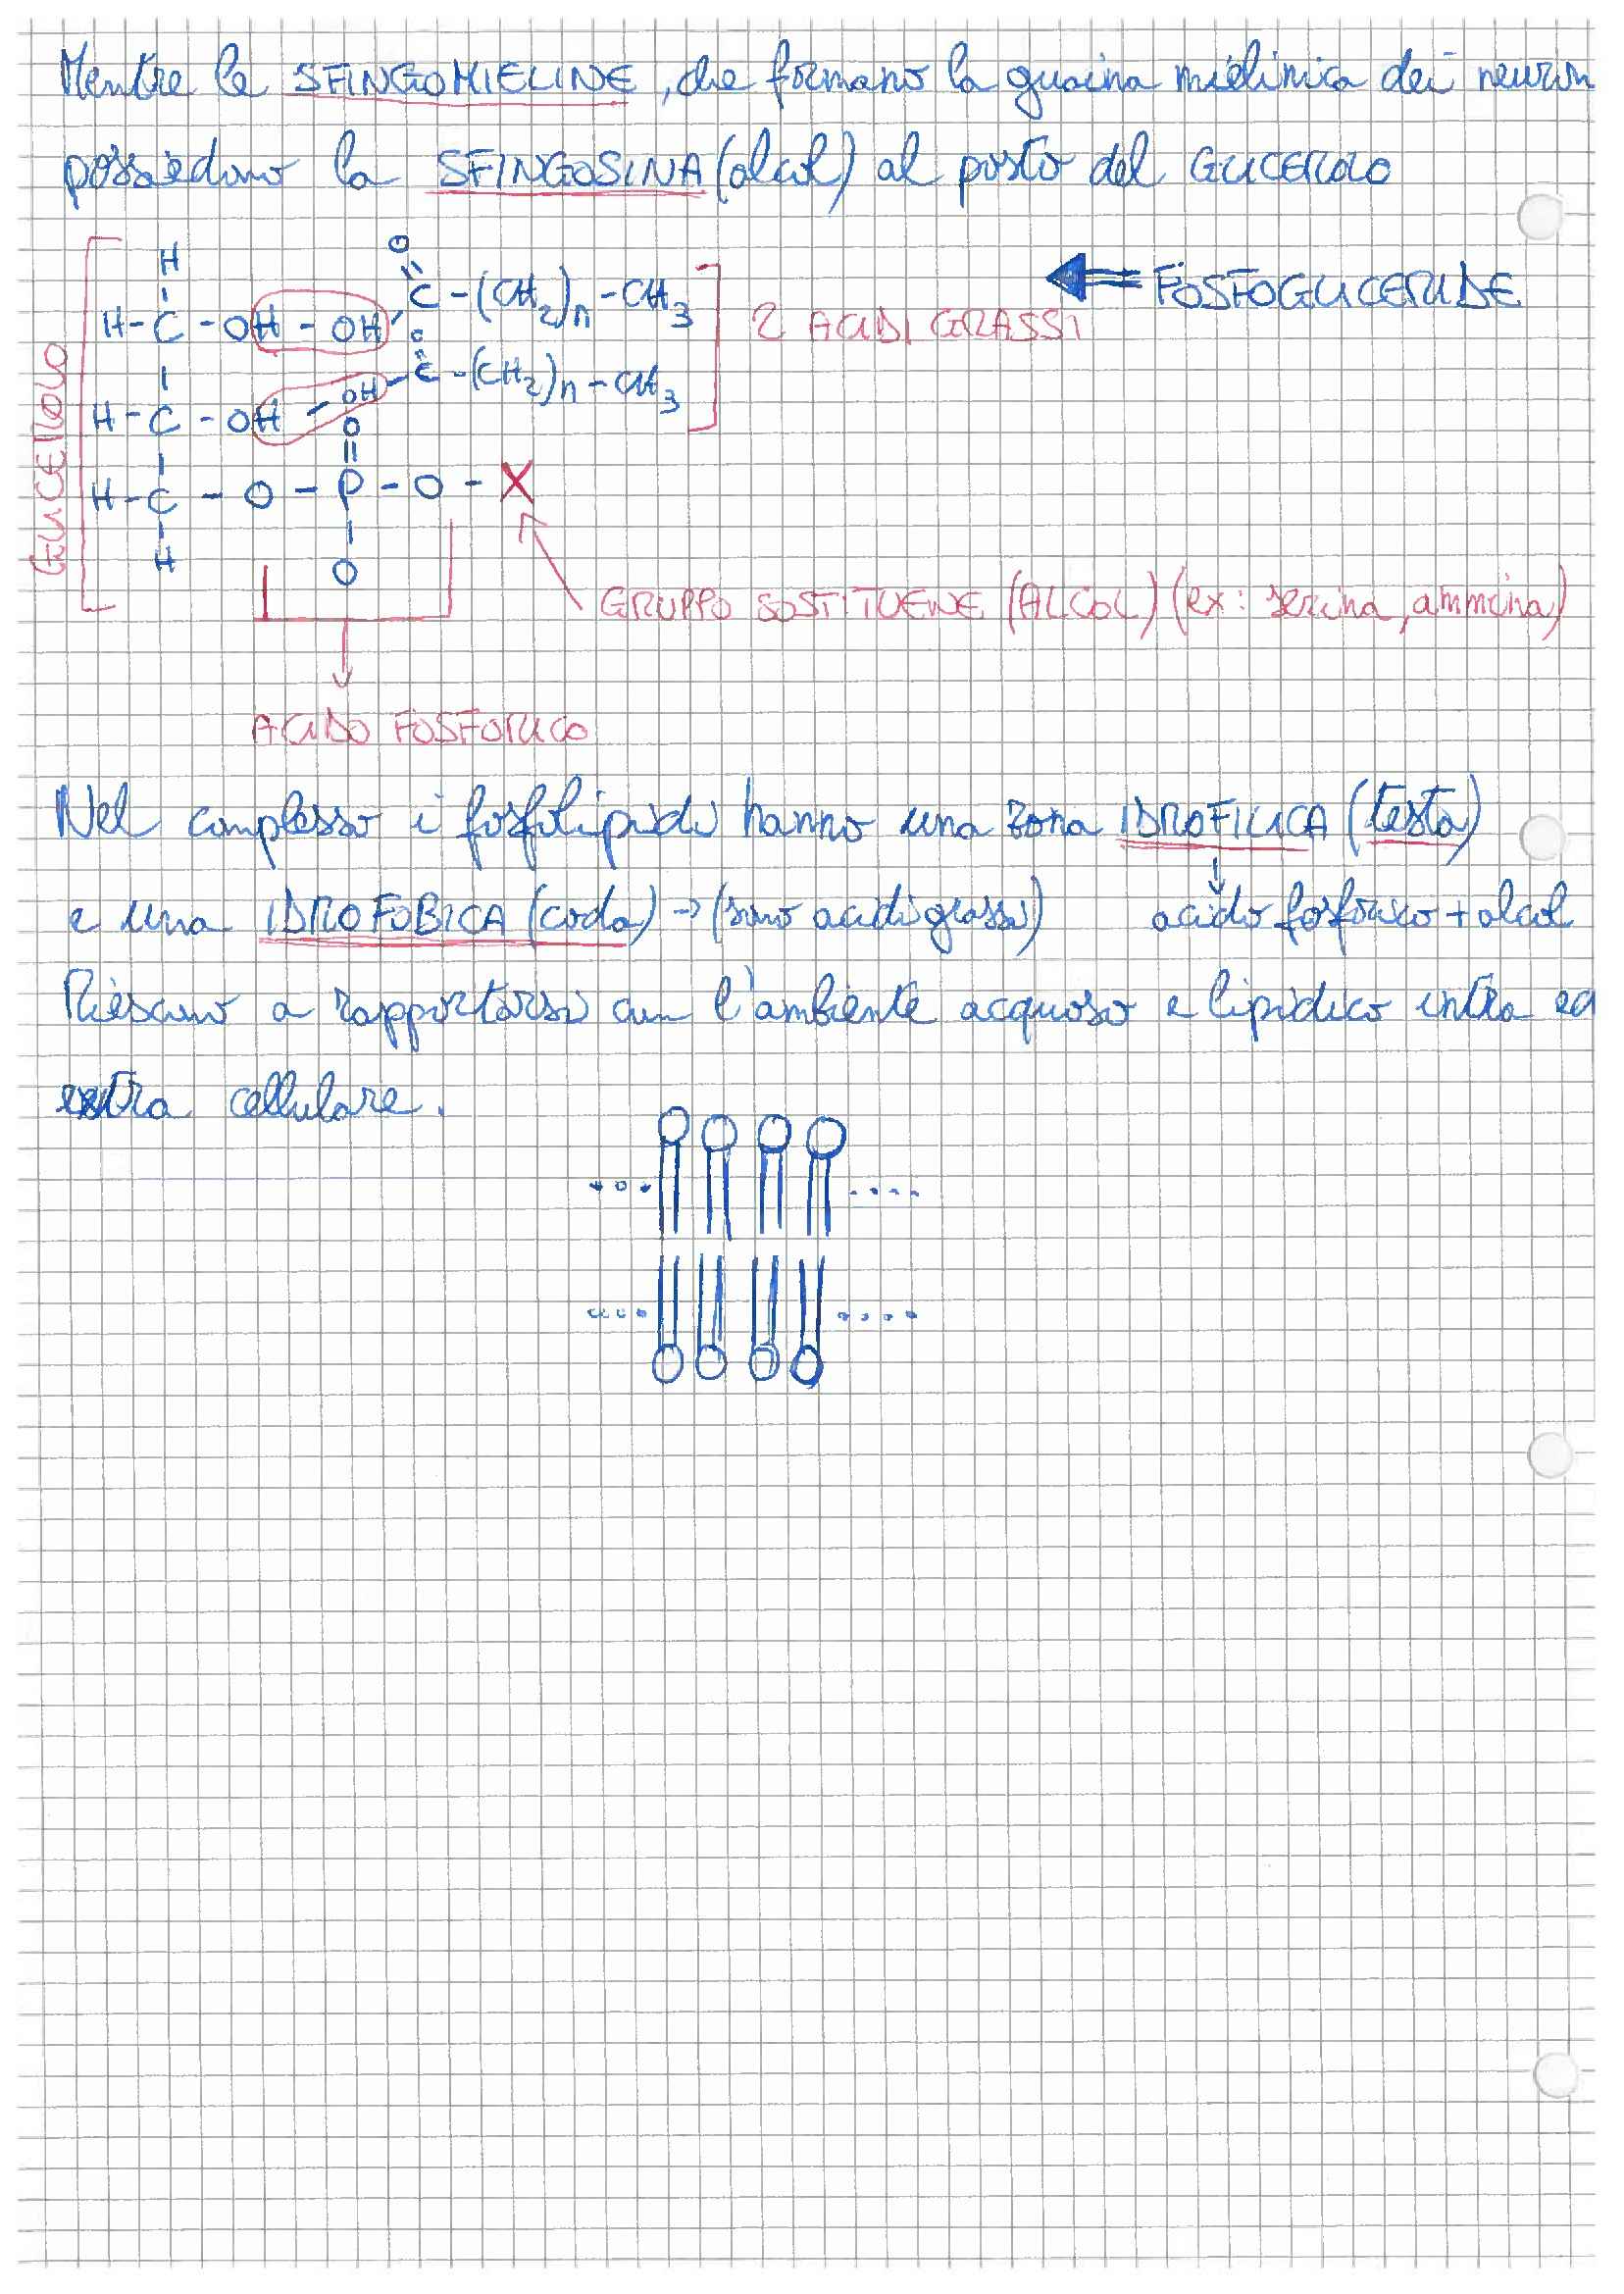 Mentre le SFINGOMIELINE, che formano la guaina mielinica dei neuron
possiedono la SFINGOSINA (alcol) al posto del GLICEROLO
H
O
H-C-OH-OH-C-(CH2)n-CH3
2 ACIDI GRASSI
FOSFOGLICERIDE
O
H-C-OH-OH-C-(CH2)n-CH3
O
H-C-O-P-O-X
H
O
GLICEROLO
GRUPPO SOSTITUENE (ALCOL) (ex: serina, ammina)
ACIDO FOSFORICO
Nel complesso i fosfolipidi hanno una zona IDROFILICA (testa)
e una IDROFOBICA (coda) → (sono acidi grassi) acido fosforico + alcol
Riescono a rapportarsi con l'ambiente acquoso e lipidico intra ed
extra cellulare.